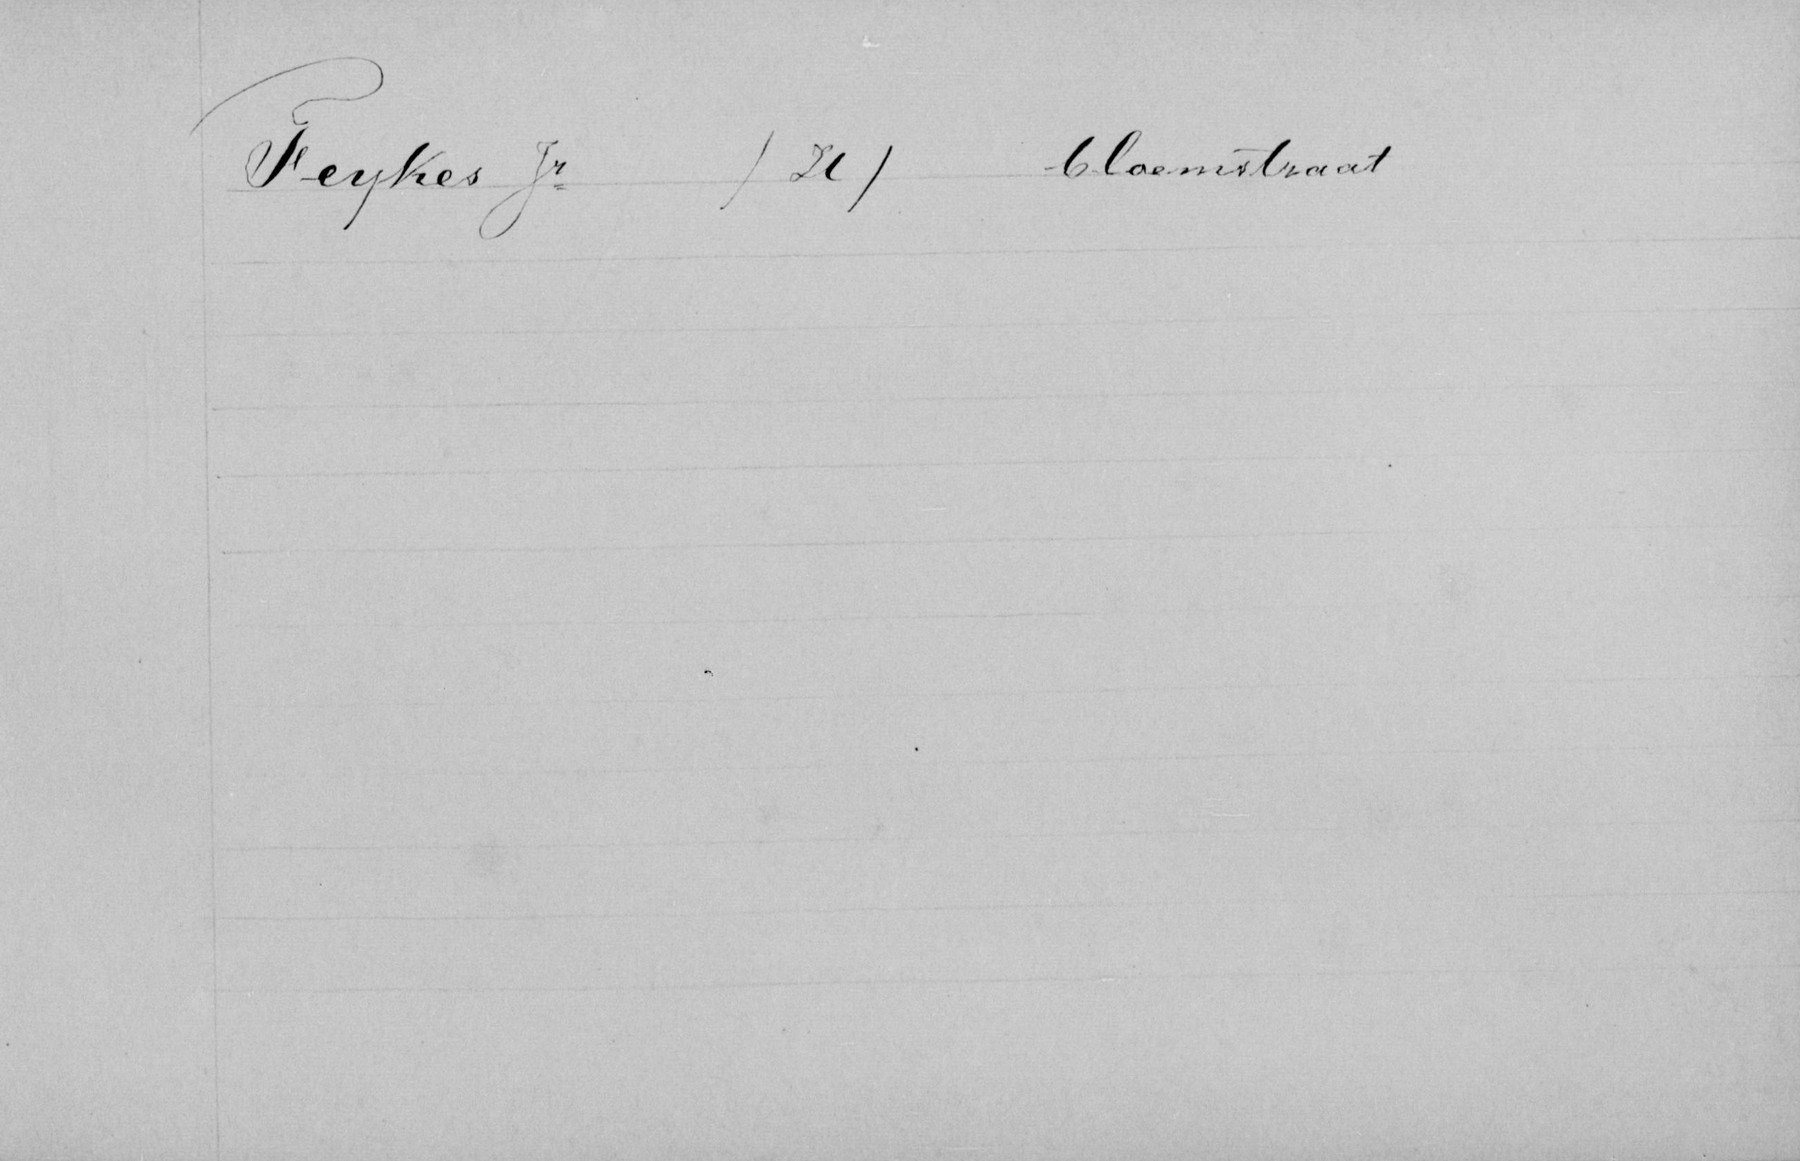 Feykes Jr / H / bloemstraat